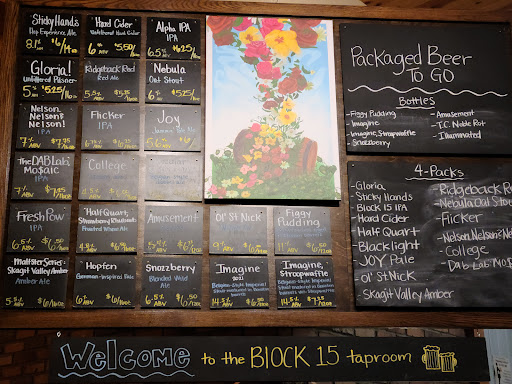 Sticky Hands
Hop Experience Ale
8.1% ABV $6/14oz
Hard Cider
Unfiltered Hard Cider
6% ABV $5.50/12oz
Alpha IPA
IPA
6.5% ABV $6.25/16oz
Gloria!
Unfiltered Pilsner
5% ABV $5.25/16oz
Ridgeback Red
Red Ale
5.5% ABV $5.25/16oz
Nebula
Oat Stout
6% ABV $5.25/16oz
Nelson,
Nelson,
Nelson!
IPA
7% ABV
Flicker
IPA
Joy
The DAB Lab:
Mosaic
IPA
7% ABV
College
Fresh Paw
IPA
6.5% ABV
Half Quart,
Frusted Wheat Ale
Amusement
Ol' St Nick
Figgy
Pudding
11% ABV
Maltster Series:
Skagit Valley Amber
Amber Ale
5.5% ABV $6/16oz
Hopfen
German-Inspired Pale
5% ABV $6/16oz
Snozzberry
Blended Wild
Ale
6.5% ABV
Imagine
2021
Belgian-Style Imperial
14.3% ABV
Imagine,
Stroopwaffle
Belgian-Style Imperial
14.3% ABV
Packaged Beer
TO GO
Bottles
- Figgy Pudding
- Imagine
- Imagine, Stroopwaffle
Snozzberry
- Amusement
- TC Noble Rot
- Illuminated
4-Packs
- Gloria
- Sticky Hands
- Block 15 IPA
- Hard Cider
- Half Quart
- Blacklight
- JOY Pale
- Ol' St Nick
- Skagit Valley Amber
- Ridgeback Red
- Nebula Oat Stout
- Flicker
- Nelson, Nelson, Nelson
- College
- Dab Lab
Welcome to the BLOCK 15 taproom